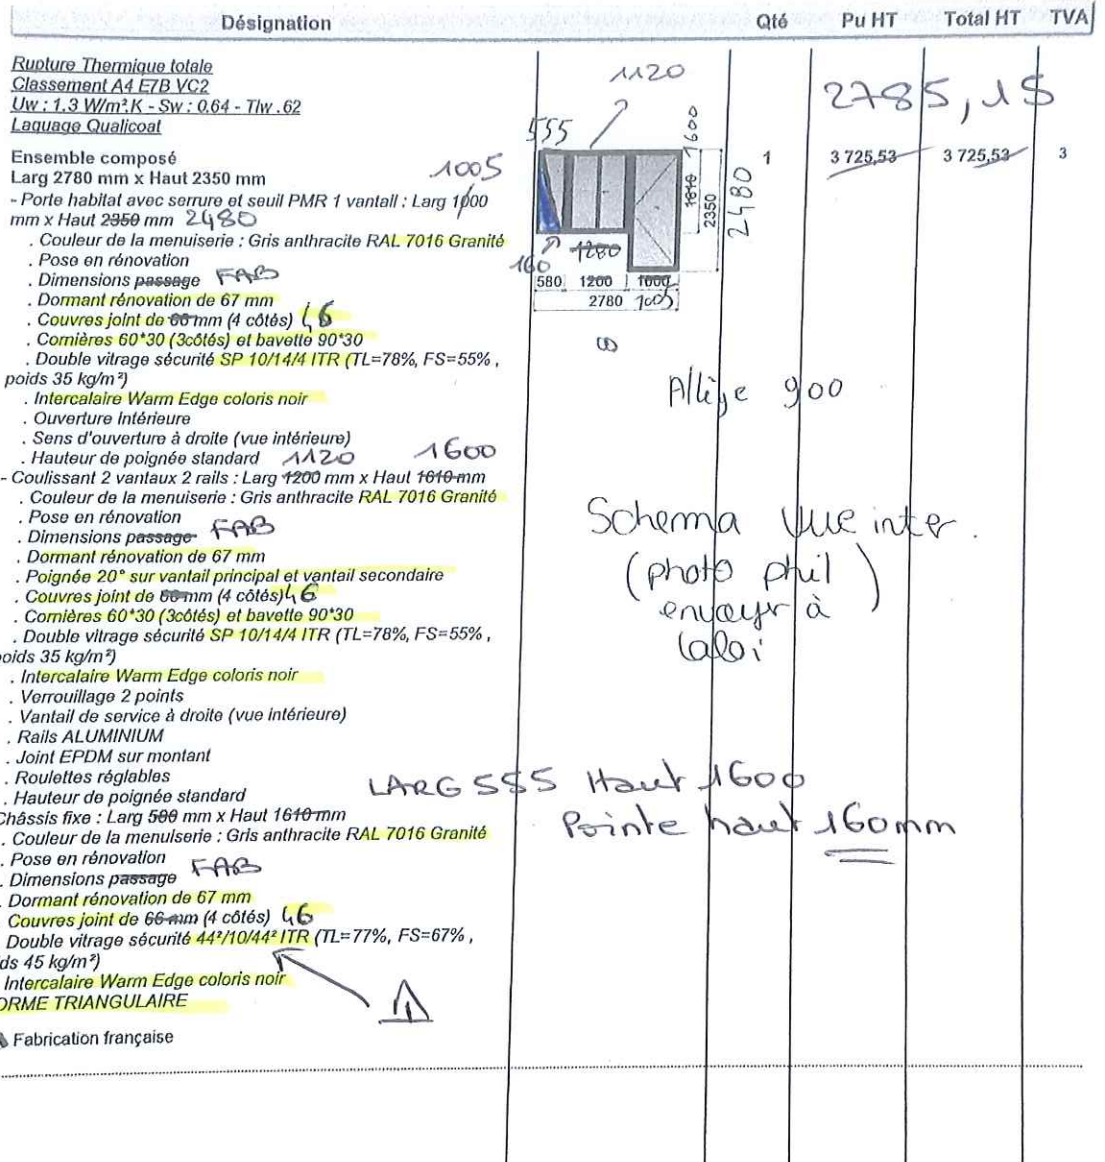 Désignation Qté Pu HT Total HT TVA
Rupture Thermique totale
Classement A4 E7B VC2
Uw : 1,3 W/m².K - Sw : 0.64 - Tlw .62
Laquage Qualicoat
1120
2785,15
555
1600
Ensemble composé 1005
Larg 2780 mm x Haut 2350 mm
1 3 725,53 3 725,53 3
- Porte habitat avec serrure et seuil PMR 1 vantail : Larg 1000
mm x Haut 2350 mm 2480
1610
2350
2480
. Couleur de la menuiserie : Gris anthracite RAL 7016 Granité
. Pose en rénovation
1280
160
. Dimensions passage FAB
580 1200 1000
. Dormant rénovation de 67 mm
2780 1005
. Couvres joint de 66 mm (4 côtés) 46
. Cornières 60*30 (3côtés) et bavette 90*30
. Double vitrage sécurité SP 10/14/4 ITR (TL=78%, FS=55% ,
poids 35 kg/m²)
Allège 900
. Intercalaire Warm Edge coloris noir
. Ouverture Intérieure
. Sens d'ouverture à droite (vue intérieure)
. Hauteur de poignée standard 1120 1600
- Coulissant 2 vantaux 2 rails : Larg 1200 mm x Haut 1610 mm
. Couleur de la menuiserie : Gris anthracite RAL 7016 Granité
. Pose en rénovation
Schema Vue inter.
. Dimensions passage FAB
. Dormant rénovation de 67 mm
. Poignée 20° sur vantail principal et vantail secondaire
(photo phil
. Couvres joint de 66 mm (4 côtés) 46
envoyer à)
. Cornières 60*30 (3côtés) et bavette 90*30
. Double vitrage sécurité SP 10/14/4 ITR (TL=78%, FS=55% ,
oids 35 kg/m²)
. Intercalaire Warm Edge coloris noir
. Verrouillage 2 points
. Vantail de service à droite (vue intérieure)
. Rails ALUMINIUM
. Joint EPDM sur montant
. Roulettes réglables
LARG 555 Haut 1600
. Hauteur de poignée standard
Châssis fixe : Larg 580 mm x Haut 1610 mm
Pointe haut 160mm
. Couleur de la menuiserie : Gris anthracite RAL 7016 Granité
. Pose en rénovation
. Dimensions passage FAB
. Dormant rénovation de 67 mm
Couvres joint de 66 mm (4 côtés) 46
Double vitrage sécurité 44²/10/44² ITR (TL=77%, FS=67% ,
ds 45 kg/m²)
Intercalaire Warm Edge coloris noir
ORME TRIANGULAIRE
Fabrication française